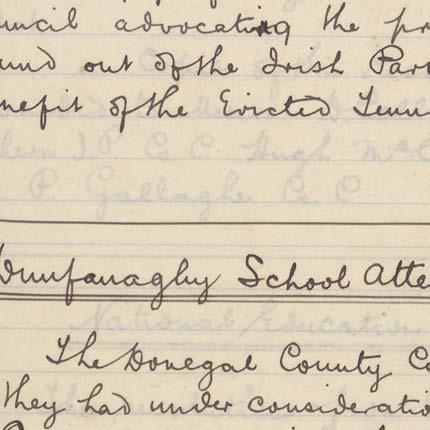 uncil advocating the pr
und out of the Irish Par
nefit of the Evicted Tenn
P. Gallaghe Co. C
Dunfanaghy School Atte
National Education
The Donegal County Co
They had under consideratio